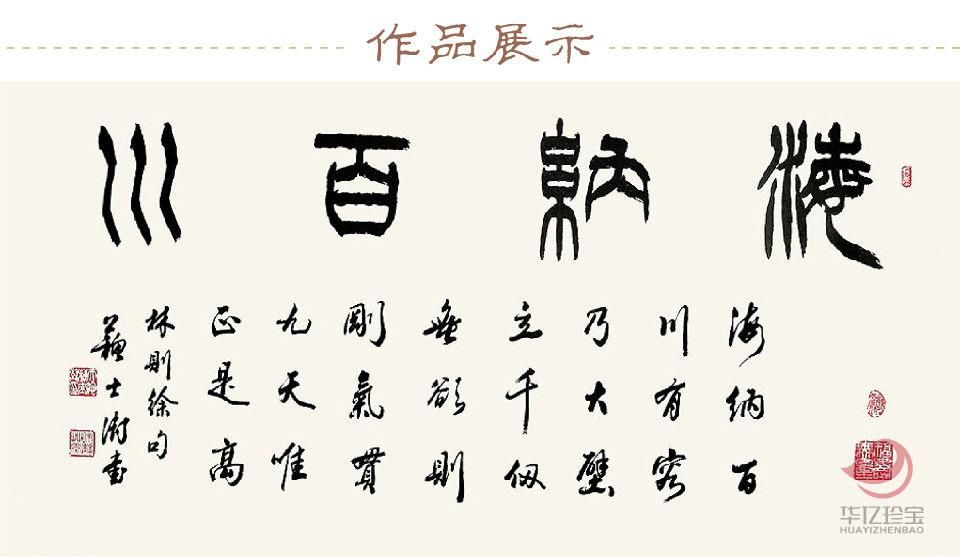 作品展示
海納百川
海納百
川有容
乃大壁
立千仞
無欲則
剛氣貫
九天唯
正是高
林則徐句
蘇士澍書
华亿珍宝
HUAYIZHENBAO